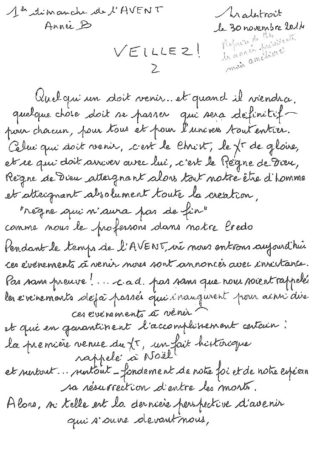 1er dimanche de l'AVENT
Malestroit
Année B
le 30 novembre 2014
VEILLEZ !
2
Quelqu'un doit venir.. et quand il viendra,
quelque chose doit se passer qui sera définitif
pour chacun, pour tous et pour l'univers tout entier.
Celui qui doit venir, c'est le Christ, le Xt de gloire,
et ce qui doit arriver avec lui, c'est le Règne de Dieu,
Règne de Dieu atteignant alors tout notre être d'homme
et atteignant absolument toute la création,
"règne qui n'aura pas de fin"
comme nous le professons dans notre Credo
Pendant le temps de l'AVENT, où nous entrons aujourd'hui
ces événements à venir nous sont annoncés avec insistance.
Pas sans preuve !... c.a.d. pas sans que nous soient rappelés
les événements déjà passés qui inaugurent pour ainsi dire
ces événements à venir
et qui en garantissent l'accomplissement certain :
la première venue du Xt, un fait historique
rappelé à Noël
et surtout... surtout - fondement de notre foi et de notre espérance
sa résurrection d'entre les morts.
Alors, si telle est la dernière perspective d'avenir
qui s'ouvre devant nous,